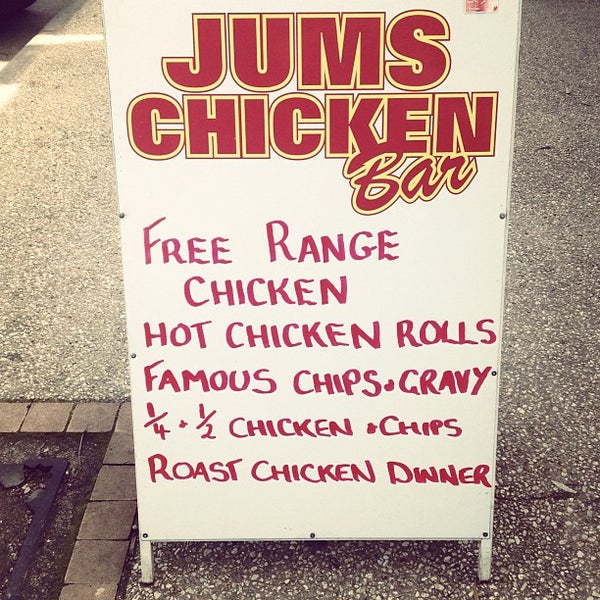 JUMS
CHICKEN
Bar
FREE RANGE
CHICKEN
HOT CHICKEN ROLLS
FAMOUS CHIPS & GRAVY
1/4 + 1/2 CHICKEN & CHIPS
ROAST CHICKEN DINNER